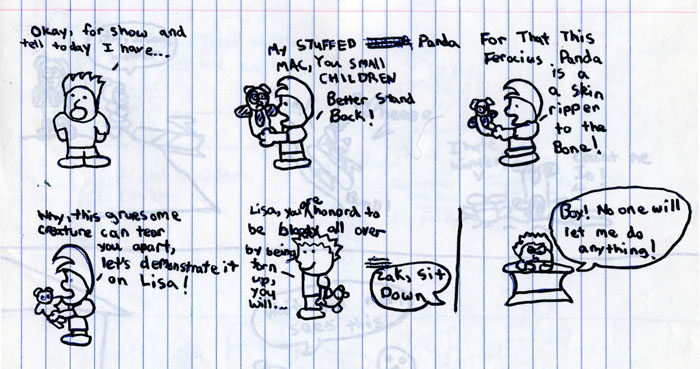 Okay, for show and
tell today I have...
My STUFFED Panda
MAC, You SMALL
CHILDREN
Better Stand
Back!
For That This
Ferocius Panda
is a
a skin
ripper
to the
Bone!
Why, this gruesome
creature can tear
you apart,
let's demonstrate it
on Lisa!
Lisa, you are honord to
be bloody all over
by being
torn
up,
you
will...
Zak, sit
Down
Boy! No one will
let me do
anything!